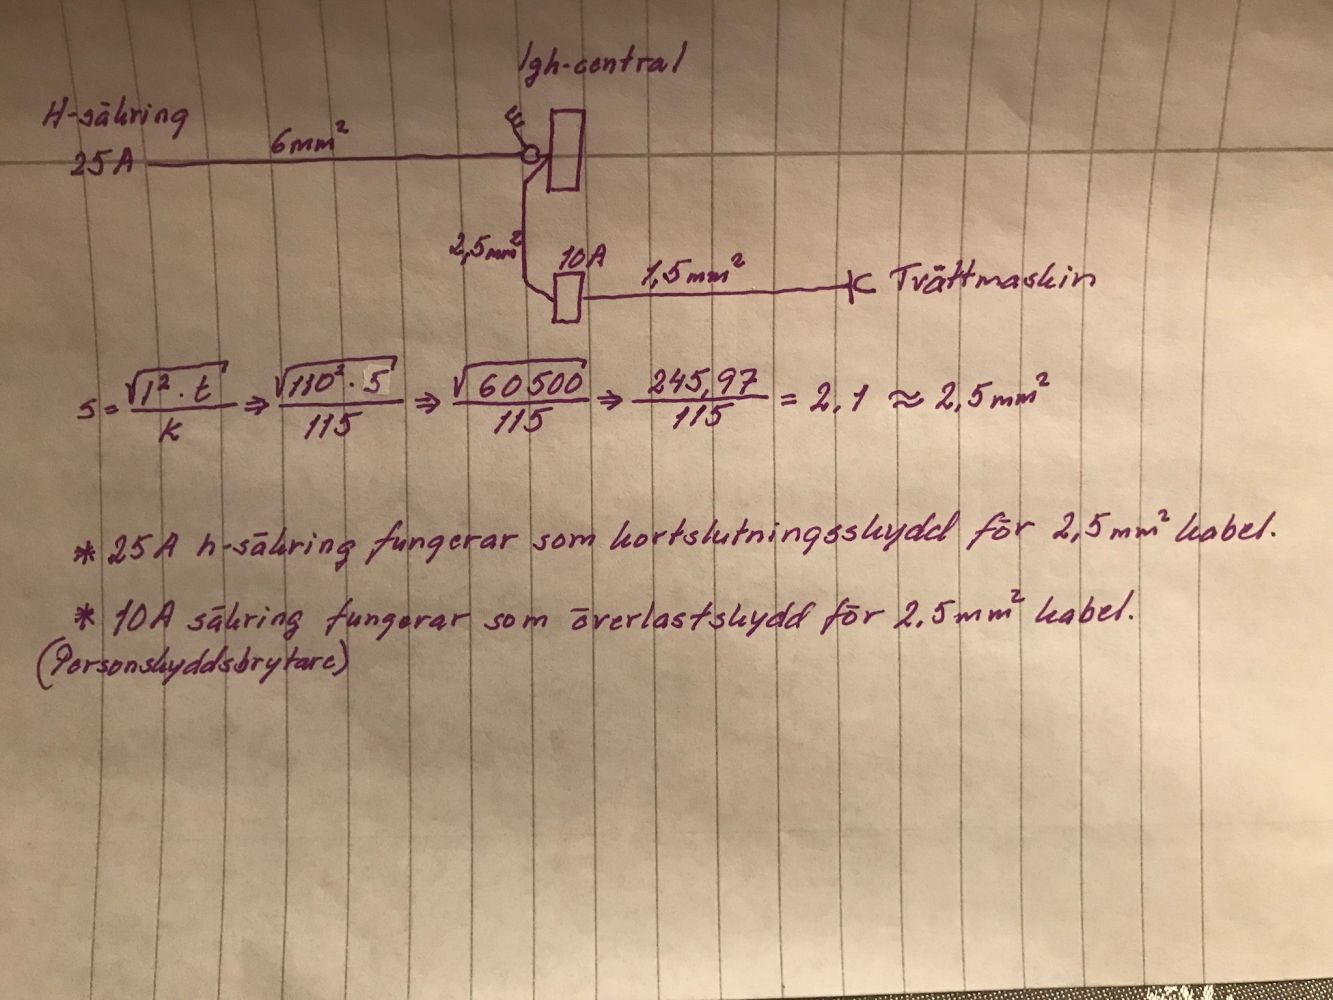 lgh-central
H-säkring
25A
6mm²
2,5mm²
10A
1,5mm²
Tvättmaskin
S = √I² · t / k ⇒ √110² · 5 / 115 ⇒ √60500 / 115 ⇒ 245,97 / 115 = 2,1 ≈ 2,5mm²
* 25A h-säkring fungerar som kortslutningsskydd för 2,5mm² kabel.
* 10A säkring fungerar som överlastskydd för 2,5mm² kabel.
(Personskyddsbrytare)